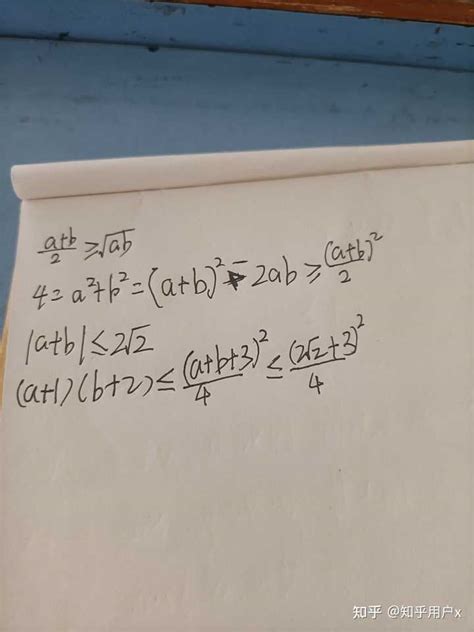 (a+b)/2 ≥ √ab
4 = a²+b² = (a+b)² - 2ab ≥ (a+b)²/2
|a+b| ≤ 2√2
(a+1)(b+2) ≤ (a+b+3)²/4 ≤ (2√2+3)²/4
知乎 @知乎用户x